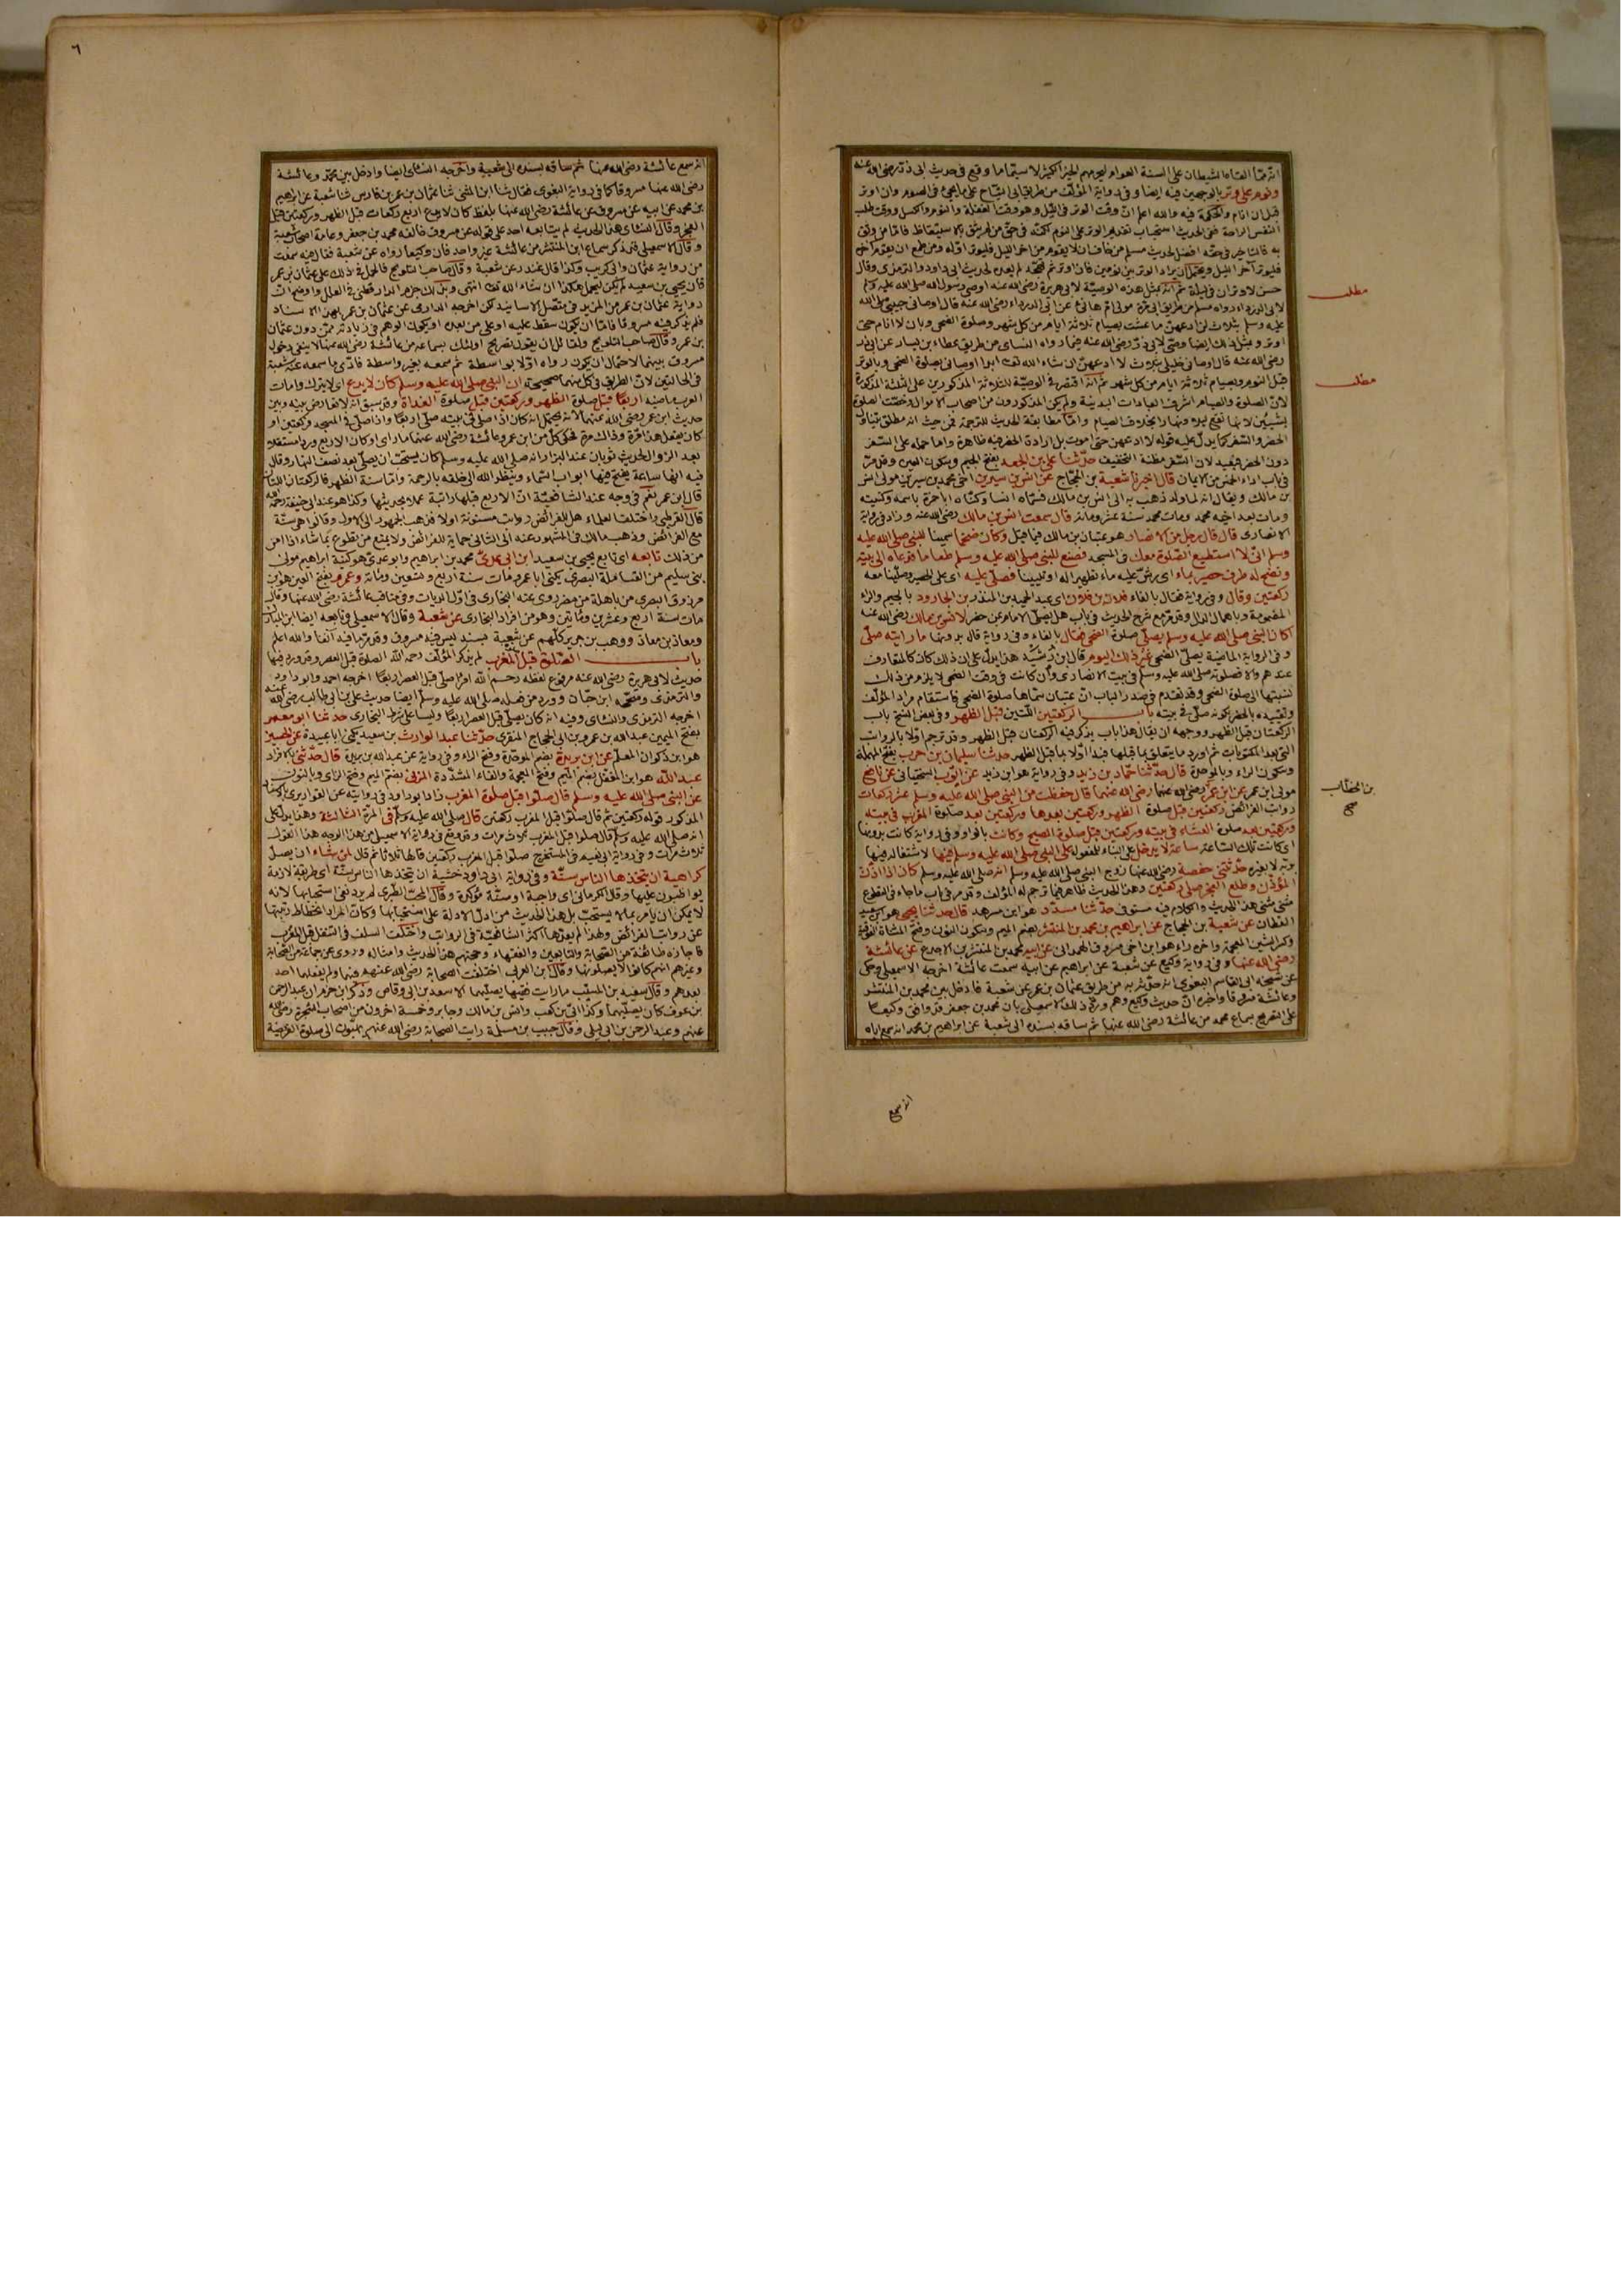 انه مما القاه الشيطان على السنة العوام ليحرمهم الخير الكثير لا سيما ما وقع في حديث ابي ذر رضي الله عنه
ونوم على وتر بالوجهين فيه ايضا وفي رواية المؤلف من طريق ابي التياح على ما يجيء في الصوم وان اوتر
قبل ان انام والحكمة فيه والله اعلم ان وقت الوتر في الليل وهو وقت الغفلة والنوم والكسل ووقت طلب
النفس الراحة ففي الحديث استحباب تقديم الوتر على النوم لكنه في حق من لم يثق بالاستيقاظ فاما من وثق
به فالتأخير في حقه افضل لحديث مسلم من خاف ان لا يقوم من اخر الليل فليوتر اوله ومن طمع ان يقوم آخره
فليوتر آخر الليل
حسن لا وتران في ليلة ثم انه بمثل هذه الوصية لابي هريرة رضي الله عنه اوصى رسول الله صلى الله عليه وسلم
لابي الدرداء رواه مسلم من طريق ابي مرة مولى ام هانئ عن ابي الدرداء رضي الله عنه قال اوصاني حبيبي صلى الله
عليه وسلم بثلاث لن ادعهن ما عشت بصيام ثلاثة ايام من كل شهر وصلوة الضحى وبان لا انام حتى
اوتر وبمثل ذلك ايضا وصى لابي ذر رضي الله عنه فيما رواه النسائي من طريق عطاء بن يسار عن ابي ذر
رضي الله عنه قال اوصاني خليلي بثلاث لا ادعهن ان شاء الله تعالى ابدا اوصاني بصلوة الضحى وبالوتر
قبل النوم وبصيام ثلاثة ايام من كل شهر ثم انه اقتصر في الوصية للثلاثة المذكورين على الثلثة المذكورة
لان الصلوة والصيام اشرف العبادات البدنية ولم يكن المذكورون من اصحاب الاموال وخصت الصلوة
بشيئين لانها تقع ليلا ونهارا بخلاف الصيام واما مطابقة الحديث للترجمة فمن حيث انه مطلق يتناول
الحضر والسفر كما يدل عليه قوله لا ادعهن حتى اموت بل ارادة الحضر فيه ظاهرة واما حمله على السفر
دون الحضر فبعيد لان السفر مظنة التخفيف حدثنا علي بن الجعد بفتح الجيم وسكون العين وقد مر
في باب اداء الخمس من الايمان قال اخبرنا شعبة بن الحجاج عن انس بن سيرين اخي محمد بن سيرين مولى انس
بن مالك ويقال انه لما ولد ذهب به الى انس بن مالك فسماه انسا وكناه ابا حمزة باسمه وكنيته
ومات بعد اخيه محمد ومات محمد سنة عشر ومائة قال سمعت انس بن مالك رضي الله عنه وزاد في رواية
الانصاري قال قال رجل من الانصار هو عتبان بن مالك فيما قيل وكان ضخما سمينا للنبي صلى الله عليه
وسلم اني لا استطيع الصلوة معك في المسجد فصنع للنبي صلى الله عليه وسلم طعاما فدعاه الى بيته
ونضح له طرف حصير بماء اي رش عليه ماء تطهيرا له او تليينا فصلى عليه اي على الحصير وصلينا معه
ركعتين وقال وفي رواية فقال بالفاء فلان بن فلان اي عبد الحميد بن المنذر بن الجارود بالجيم والراء
المضمومة وباهمال الدال وقد مر مع شرح الحديث في باب هل يصلي الامام بمن حضر لانس بن مالك رضي الله عنه
اكان النبي صلى الله عليه وسلم يصلي صلوة الضحى فقال بالفاء وفي رواية قال بدونها ما رايته صلى
وفي الرواية الماضية يصلي الضحى غير ذلك اليوم قال ابن رشيد هذا يدل على ان ذلك كان كالمتعارف
عندهم والا فصلوته صلى الله عليه وسلم في بيت الانصاري وان كانت في وقت الضحى لا يلزم من ذلك
نسبتها الى صلوة الضحى وقد تقدم في صدر الباب ان عتبان سماها صلوة الضحى فاستقام مراد المؤلف
وتقييده بالحضر لكونه صلى في بيته باب الركعتين اللتين قبل الظهر وفي بعض النسخ باب
الركعتان قبل الظهر ووجهه ان يقال هذا باب يذكر فيه الركعتان قبل الظهر وقد ترجم اولا بالرواتب
التي بعد المكتوبات ثم اورد ما يتعلق بما قبلها فبدا اولا بما قبل الظهر حدثنا سليمان بن حرب بفتح المهملة
وسكون الراء وبالموحدة قال حدثنا حماد بن زيد وفي رواية هو ابن زيد عن ايوب السختياني عن نافع
مولى ابن عمر عن ابن عمر رضي الله عنهما قال حفظت من النبي صلى الله عليه وسلم عشر ركعات
رواتب الفرائض ركعتين قبل صلوة الظهر وركعتين بعدها وركعتين بعد صلوة المغرب في بيته
وركعتين بعد صلوة العشاء في بيته وركعتين قبل صلوة الصبح وكانت بالواو وفي رواية كانت بدونها
اي كانت تلك الساعة ساعة لا يدخل على البناء للمفعول على النبي صلى الله عليه وسلم فيها لاشتغاله فيها
بربه لا بغيره حدثتني حفصة رضي الله عنها زوج النبي صلى الله عليه وسلم انه صلى الله عليه وسلم كان اذا اذن
المؤذن وطلع الفجر صلى ركعتين وهذا الحديث ظاهر فيما ترجم له المؤلف وقد مر في باب ما جاء في التطوع
مثنى مثنى هذا الحديث والكلام فيه مستوفى حدثنا مسدد هو ابن مسرهد قال حدثنا يحيى هو ابن سعيد
القطان عن شعبة بن الحجاج عن ابراهيم بن محمد بن المنتشر بضم الميم وسكون النون وفتح المثناة الفوقية
وكسر الشين المعجمة واخره راء هو ابن اخي مسروق الهمداني عن ابيه محمد بن المنتشر بن الاجدع عن عائشة
رضي الله عنها وفي رواية وكيع عن شعبة عن ابراهيم عن ابيه سمعت عائشة اخرجه الاسمعيلي وحكى
عن شيخه ابي القاسم البغوي انه حدثه به من طريق عثمان بن عمر عن شعبة فادخل بين محمد بن المنتشر
وعائشة مسروقا واخبره ان حديث وكيع وهم ورد ذلك الاسمعيلي بان محمد بن جعفر قد وافق وكيعا
على التصريح بسماع محمد من عائشة رضي الله عنها ثم ساقه بسنده الى شعبة عن ابراهيم بن محمد انه سمع اباه
مطلب
مطلب
بن الخطاب
صح
انه سمع
٦
انه سمع عائشة رضي الله عنها ثم ساقه بسنده الى شعبة واخرجه النسائي ايضا وادخل بين محمد وعائشة
رضي الله عنها مسروقا كما في رواية البغوي فقال ثنا ابن المثنى ثنا عثمان بن عمر بن فارس ثنا شعبة عن ابراهيم
بن محمد عن ابيه عن مسروق عن عائشة رضي الله عنها بلفظ كان لا يدع اربع ركعات قبل الظهر وركعتين قبل
الفجر وقال النسائي هذا الحديث لم يتابعه احد على قوله عن مسروق خالفه محمد بن جعفر وعامة اصحاب شعبة
وقال الاسمعيلي قد ذكر سماع ابن المنتشر من عائشة غير واحد فان وكيعا رواه عن شعبة فقال فيه سمعت
من رواية عثمان وابي كريب وكذا قال غندر عن شعبة وقال صاحب التلويح فالحمل في ذلك على عثمان بن عمر
فان يحيى بن سعيد لم يكن ليحمل هكذا ان شاء الله تعالى انتهى وبذلك جزم الدارقطني في العلل واوضح ان
رواية عثمان بن عمر من المزيد في متصل الاسانيد لكن اخرجه الدارمي عن عثمان بن عمر بهذا الاسناد
فلم يذكر فيه مسروقا فاما ان يكون سقط عليه او على من بعده او يكون الوهم في زيادته ممن دون عثمان
بن عمر وقال صاحب التلويح ولقائل ان يقول تصريح اولئك بسماعه من عائشة رضي الله عنها لا ينفي دخول
مسروق بينهما لاحتمال ان يكون رواه اولا بواسطة ثم سمعه بغير واسطة فادى ما سمعه عنه شعبة
في الحالتين لان الطريق في كل منهما صحيحة ان النبي صلى الله عليه وسلم كان لا يدع اي لا يترك وامات
العرب ماضيه اربعا قبل صلوة الظهر وركعتين قبل صلوة الغداة وقد سبق انه لا تعارض بينه وبين
حديث ابن عمر رضي الله عنهما لانه يحتمل انه كان اذا صلى في بيته صلى اربعا واذا صلى في المسجد ركعتين او
كان يفعل هذا مرة وذاك مرة فحكى كل من ابن عمر وعائشة رضي الله عنهما ما راى او كان الاربع وردا مستقلا
بعد الزوال لحديث ثوبان عند البزار انه صلى الله عليه وسلم كان يستحب ان يصلي بعد نصف النهار وقال
فيه انها ساعة يفتح فيها ابواب السماء وينظر الله الى خلقه بالرحمة واما سنة الظهر فالركعتان اللتان
قال ابن عمر نعم في وجه عند الشافعية ان الاربع قبلها راتبة عملا بحديثها وكذا هو عند ابي حنيفة رحمه الله
قال القرطبي واختلف العلماء هل للفرائض رواتب مسنونة او لا فذهب الجمهور الى الاول وقالوا هي سنة
مع الفرائض وذهب مالك في المشهور عنه الى الثاني حماية للفرائض ولا يمنع من تطوع بما شاء اذا امن
من ذلك تابعه اي تابع يحيى بن سعيد ابن ابي عدي محمد بن ابراهيم وابو عدي هو كنية ابراهيم مولى
بني سليم من القساملة البصري يكنى ابا عمرو مات سنة اربع وتسعين ومائة وعمرو بفتح العين هو ابن
مرزوق البصري من باهلة من مضر روى عنه البخاري في اول الديات وفي مناقب عائشة رضي الله عنها وقال
مات سنة اربع وعشرين ومأتين وهو من افراد البخاري عن شعبة وقال الاسمعيلي وتابعه ايضا ابن المبارك
ومعاذ بن معاذ ووهب بن جرير كلهم عن شعبة بسند ليس فيه مسروق وقد مر ما فيه آنفا والله اعلم
باب الصلوة قبل المغرب لم يذكر المؤلف رحمه الله الصلوة قبل العصر وقد ورد فيها
حديث لابي هريرة رضي الله عنه مرفوع لفظه رحم الله امرأ صلى قبل العصر اربعا اخرجه احمد وابو داود
والترمذي وصححه ابن حبان وورد من فعله صلى الله عليه وسلم ايضا حديث علي بن ابي طالب رضي الله عنه
اخرجه الترمذي والنسائي وفيه انه كان يصلي قبل العصر اربعا وليسا على شرط البخاري حدثنا ابو معمر
بفتح الميمين عبد الله بن عمرو بن ابي الحجاج المنقري حدثنا عبد الوارث بن سعيد يكنى ابا عبيدة عن الحسين
هو ابن ذكوان المعلم عن ابن بريدة بضم الموحدة وفتح الراء وفي رواية عن عبد الله بن بريدة قال حدثني بالافراد
عبد الله هو ابن المغفل بضم الميم وفتح المعجمة والفاء المشددة المزني بضم الميم وفتح الزاي وبالنون
عن النبي صلى الله عليه وسلم قال صلوا قبل صلوة المغرب زاد ابو داود في روايته عن القواريري بالاسناد
المذكور قوله ركعتين ثم قال صلوا قبل المغرب ركعتين قال صلى الله عليه وسلم في المرة الثالثة وهذا يدل على
انه صلى الله عليه وسلم قال صلوا قبل المغرب ثلاث مرات وقد وقع في رواية الاسمعيلي من هذا الوجه هذا القول
ثلاث مرات وفي رواية ابي نعيم في المستخرج صلوا قبل المغرب ركعتين قالها ثلاثا ثم قال لمن شاء ان يصلي
كراهية ان يتخذها الناس سنة وفي رواية ابي داود خشية ان يتخذها الناس سنة اي طريقة لازمة
يواظبون عليها وقال الكرماني اي واجبة او سنة مؤكدة وقال المحب الطبري لم يرد نفي استحبابها لانه
لا يمكن ان يامر بما لا يستحب بل هذا الحديث من ادل الادلة على استحبابها وكان المراد انحطاط رتبتها
عن رواتب الفرائض ولهذا لم يعدها اكثر الشافعية في الرواتب واختلف السلف في التنفل قبل المغرب
فاجازه طائفة من الصحابة والتابعين والفقهاء وحجتهم هذا الحديث وامثاله وروي عن جماعة من الصحابة
وغيرهم انهم كانوا لا يصلونها وقال ابن العربي اختلفت الصحابة رضي الله عنهم فيهما ولم يفعلهما احد
بعدهم وقال سعيد بن المسيب ما رايت فقيها يصليهما الا سعد بن ابي وقاص وذكر ابن حزم ان عبد الرحمن
بن عوف كان يصليهما وكذا ابي بن كعب وانس بن مالك وجابر وخمسة اخرون من اصحاب الشجرة رضي الله
عنهم وعبد الرحمن بن ابي ليلى وقال حبيب بن مسلمة رايت الصحابة رضي الله عنهم يهبون الى صلوة الفريضة